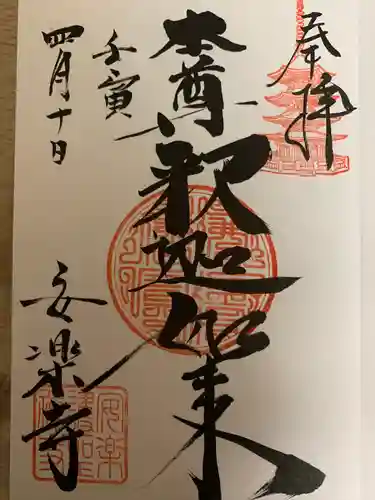 奉拝
本尊
釈迦如来
壬寅
四月十日
安楽寺